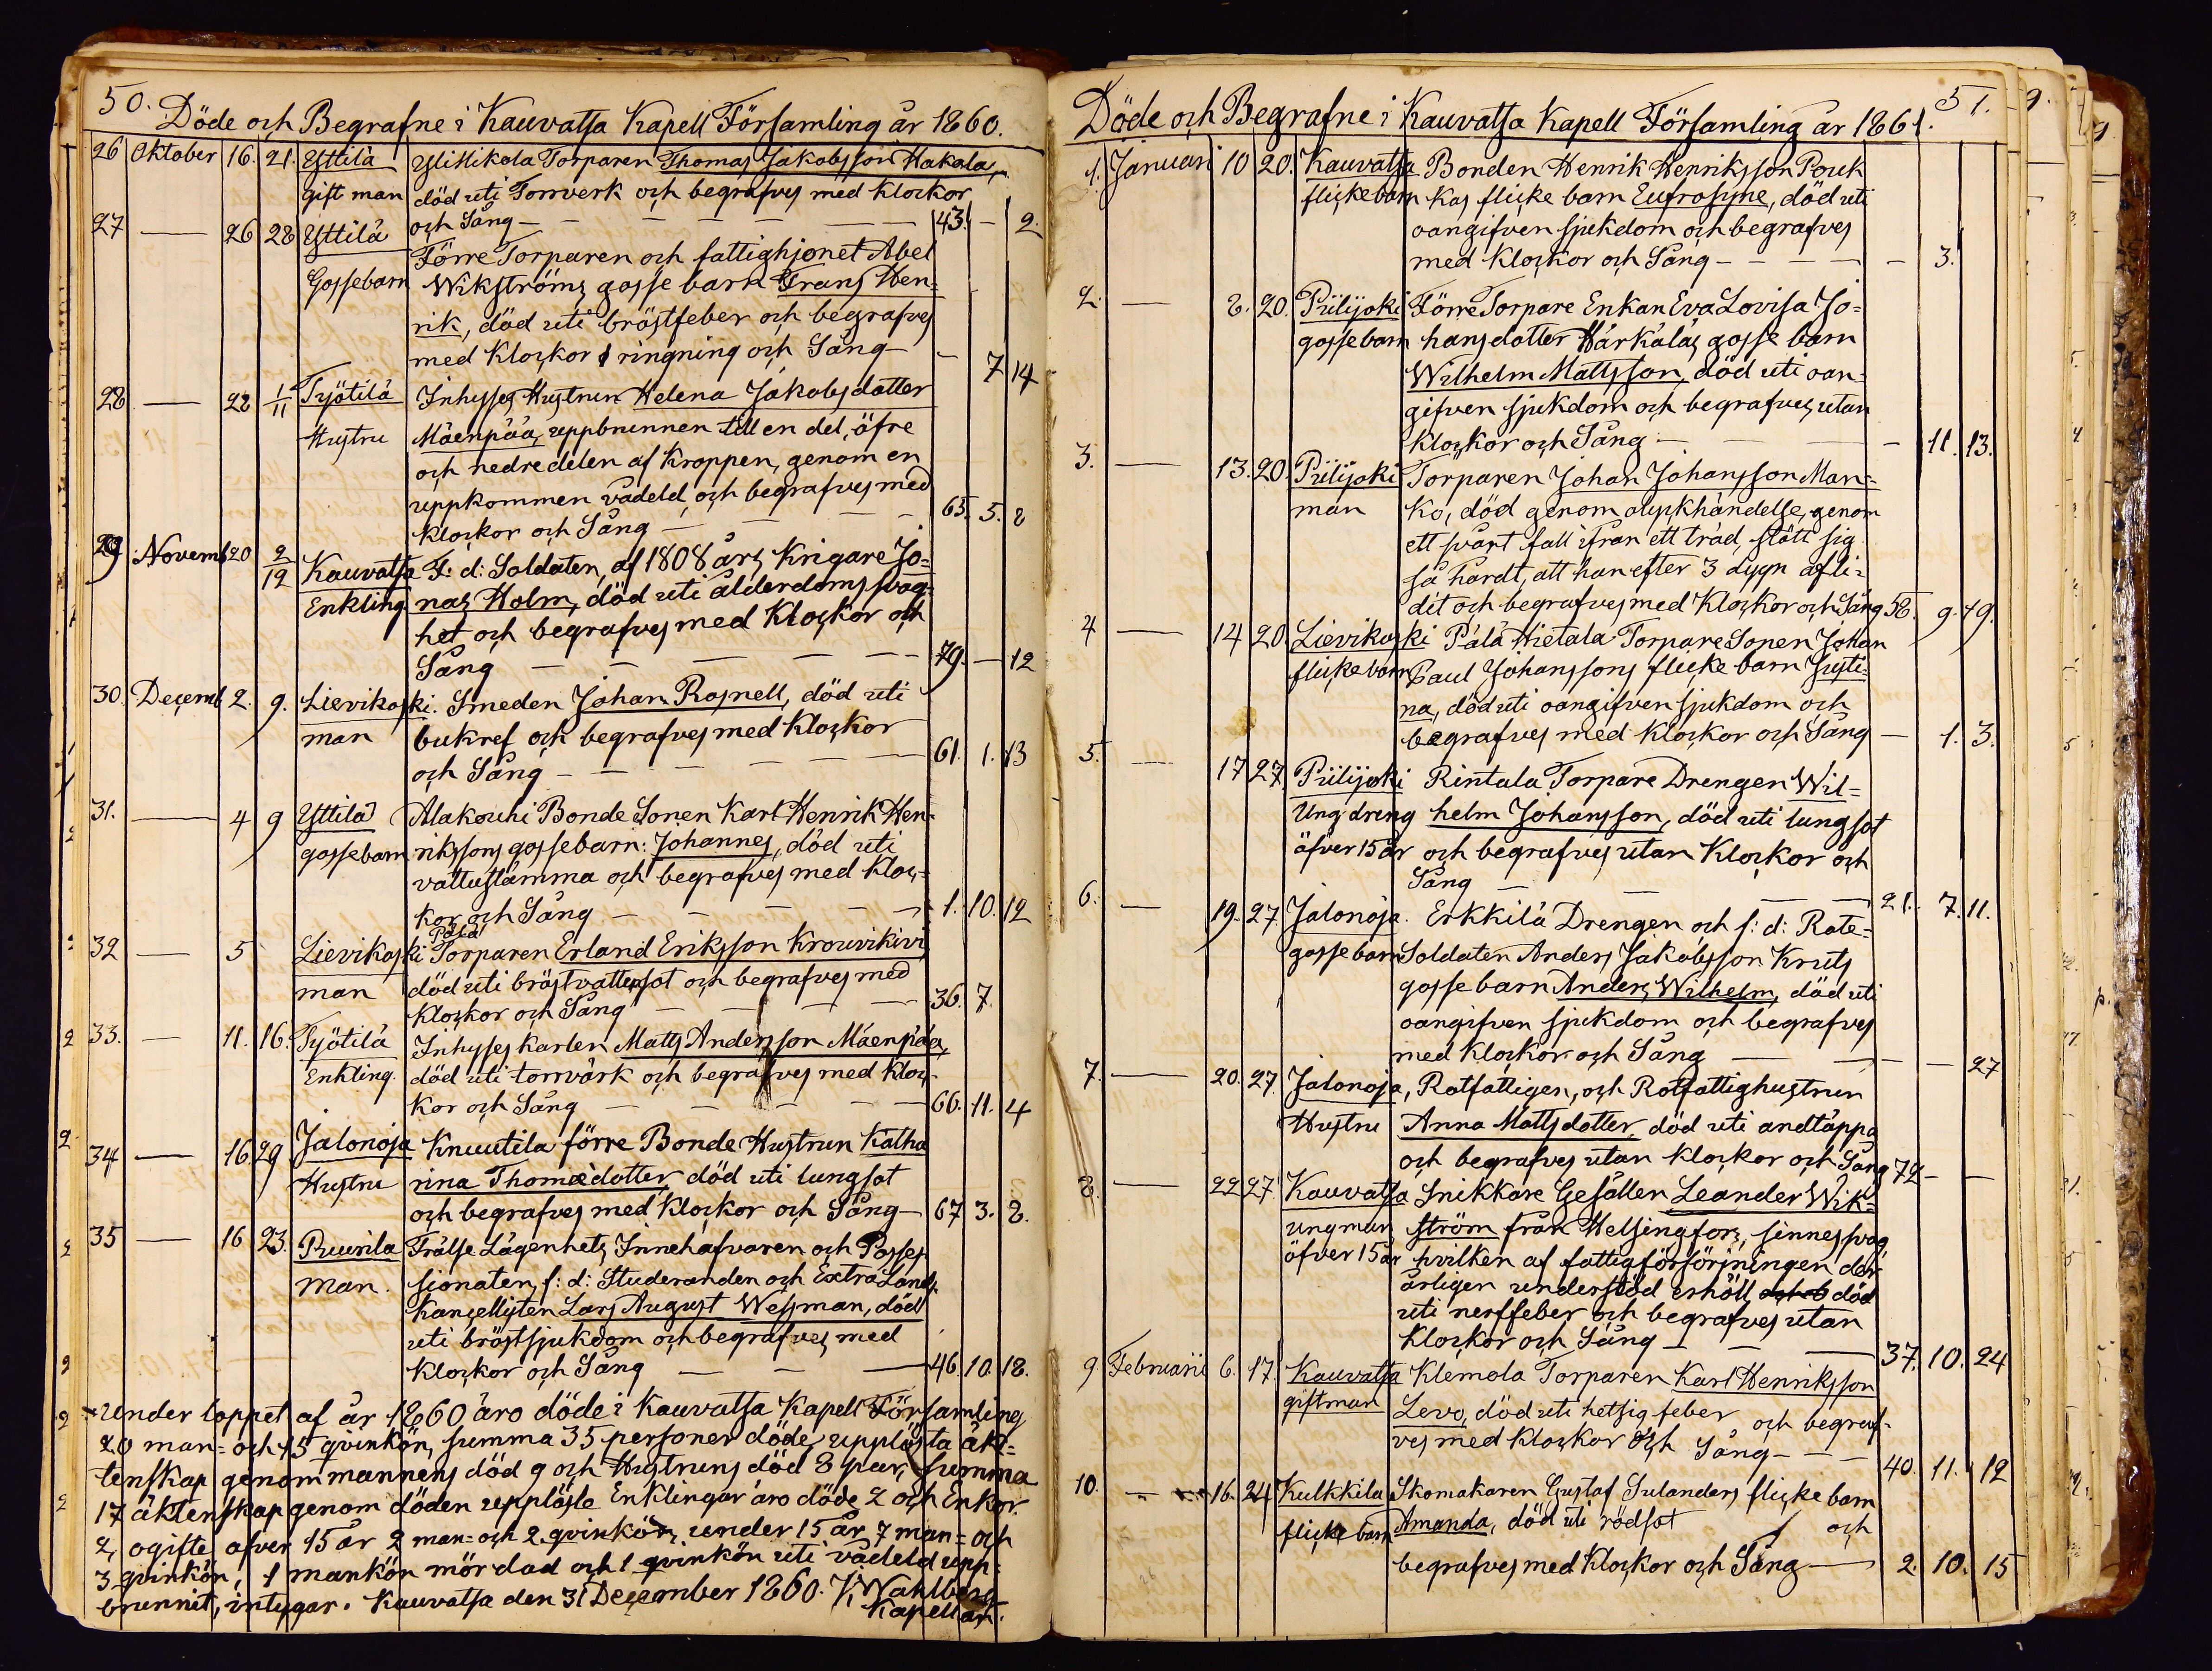 50. Döde och Begrafne i Kauvatsa Kapell Församling år 1860.
26 Oktober 16. 21. Yttilä Ylitikola Torparen Thomas Jakobsson Hakala,
gift man död uti Torrverk och begrafves med klockor
och Sång — 43. — 2.
27 — 26 28 Yttilä Förre Torparen och fattighjonet Abel
Gossebarn Wikströms gosse barn Frans Hen=
rik, död uti bröstfeber och begrafves
med klockor ringning och Sång — — 7 14
28 — 22 1/11 Työtilä Inhyses Hustrun Helena Jakobsdotter
Hustru Mäenpää, uppbrunnen till en del, öfre
och nedre delen af kroppen, genom en
uppkommen vådeld, och begrafves med
klockor och Sång — 65. 5. 8
29 Novemb 20 2/12 Kauvatsa F: d: Soldaten, af 1808 års Krigare Jo=
Enkling nas Holm, död uti ålderdoms svag=
het och begrafves med Klockor och
Sång — 79. — 12
30. Decemb 2. 9. Lievikoski. Smeden Johan Rosnell, död uti
man bukref och begrafves med klockor
och Sång — 61. 1. 13
31. — 4 9 Yttilä Alakouhi Bonde Sonen Karl Henrik Hen=
gossebarn rikssons gossebarn: Johannes, död uti
vattustämma och begrafves med kloc=
kor och Sång — 1. 10. 12
32 — 5 Lievikoski Pälä Torparen Erland Eriksson Krouvikivi
man död uti bröstvattusot och begrafves med
klockor och Sång — 36. 7.
33. — 11. 16. Työtilä Inhyses karlen Matts Andersson Mäenpää,
Enkling. död uti torrvärk och begrafves med kloc=
kor och Sång — 66. 11. 4
34 — 16 29 Jalonoja Knuutila förre Bonde Hustrun Katha
Hustru rina Thomædotter död uti lungsot
och begrafves med klockor och Sång — 67 3. 8.
35 — 16 23. Puurila Frälse Lägenhets Innehafvaren och Posses=
Man. sionaten, f: d: Studeranden och Extra Lands
Kancellisten Lars August Wessman, död
uti bröstsjukdom och begrafves med
Klockor och Sång — 46. 10. 18.
Under loppet af år 1860 äro döde i Kauvatsa Kapell Församling
20 man= och 15 qvinkön, summa 35 personer döde, upplösta äk=
tenskap genom mannens död 9 och Hustruns död 8 par, summa
17 äktenskap genom döden upplösle Enklingar äro döde 2 och Enkor
2, ogifte öfver 15 år 2 man= och 2 qvinkön, under 15 år, 7 man= och
3 qvinkön, 1 mankön mördad och 1 qvinkön uti vådeld upp=
brunnit, intygar. Kauvatsa den 31 December 1860. K Wahlberg
Kapellan.
Döde och Begrafne i Kauvatsa Kapell Församling år 1861. 51.
1. Januari 10 20. Kauvatsa Bonden Henrik Henriksson Pouk
flickebarn kas flicke barn Eufrosyne, död uti
oangifven sjukdom och begrafves
med klockor och Sång — — 3.
2. — 8. 20. Piilijoki Förre Torpare Enkan Eva Lovisa Jo=
gossebarn hansdotter Härkäläs gosse barn
Wilhelm Mattsson, död uti oan=
gifven sjukdom och begrafves, utan
klockor och Sång — — 11. 13.
3. — 13. 20. Piilijoki Torparen Johan Johansson Man=
man ko, död genom olyckhändelse, genom
ett svårt fall ifrån ett träd, stött sig
så hårdt, att han efter 3 dygn afli=
dit och begrafves med klockor och Sång 58. 9. 19.
4 — 14 20. Lievikoski Pälä Hietala Torpare Sonen Johan
flickebarn Paul Johanssons flicke barn Justi=
na, död uti oangifven sjukdom och
begrafves med klockor och Sång — 1. 3.
5. — 17 27. Piilijoki Rintala Torpare Drengen Wil=
Ung dreng helm Johansson, död uti lungsot
öfver 15 år och begrafves utan klockor och
Sång — 21. 7. 11.
6. — 19. 27. Jalonoja. Erkkilä Drengen och f: d: Rote=
gossebarn Soldaten Anders Jakobsson Kruts
gosse barn Anders Wilhelm, död uti
oangifven sjukdom och begrafves
med klockor och Sång — — — 27
7. — 20. 27. Jalonoja, Rotfattigen, och Rotfattighustrun
Hustru Anna Mattsdotter, död uti andtäppa
och begrafves utan klockor och Sång 72 — —
8. — 22 27. Kauvatsa Snikkare Gesällen Leander Wik=
ungman ström från Helsingfors, sinnessvag,
öfver 15 år hvilken af fattigförsörjningen der
årligen understöd erhöll död
uti nerffeber och begrafves utan
Klockor och Sång — 37. 10. 24
9. Februarii 6. 17. Kauvatsa Klemola Torparen Karl Henriksson
giftman Levo, död uti hetsig feber och begraf=
ves med klockor och Sång — 40. 11. 12
10. — 16. 24 Kulkkila Skomakaren Gustaf Sulanders flicke barn
flicke barn Amanda, död uti rödsot och
begrafves med klockor och Sång — 2. 10. 15